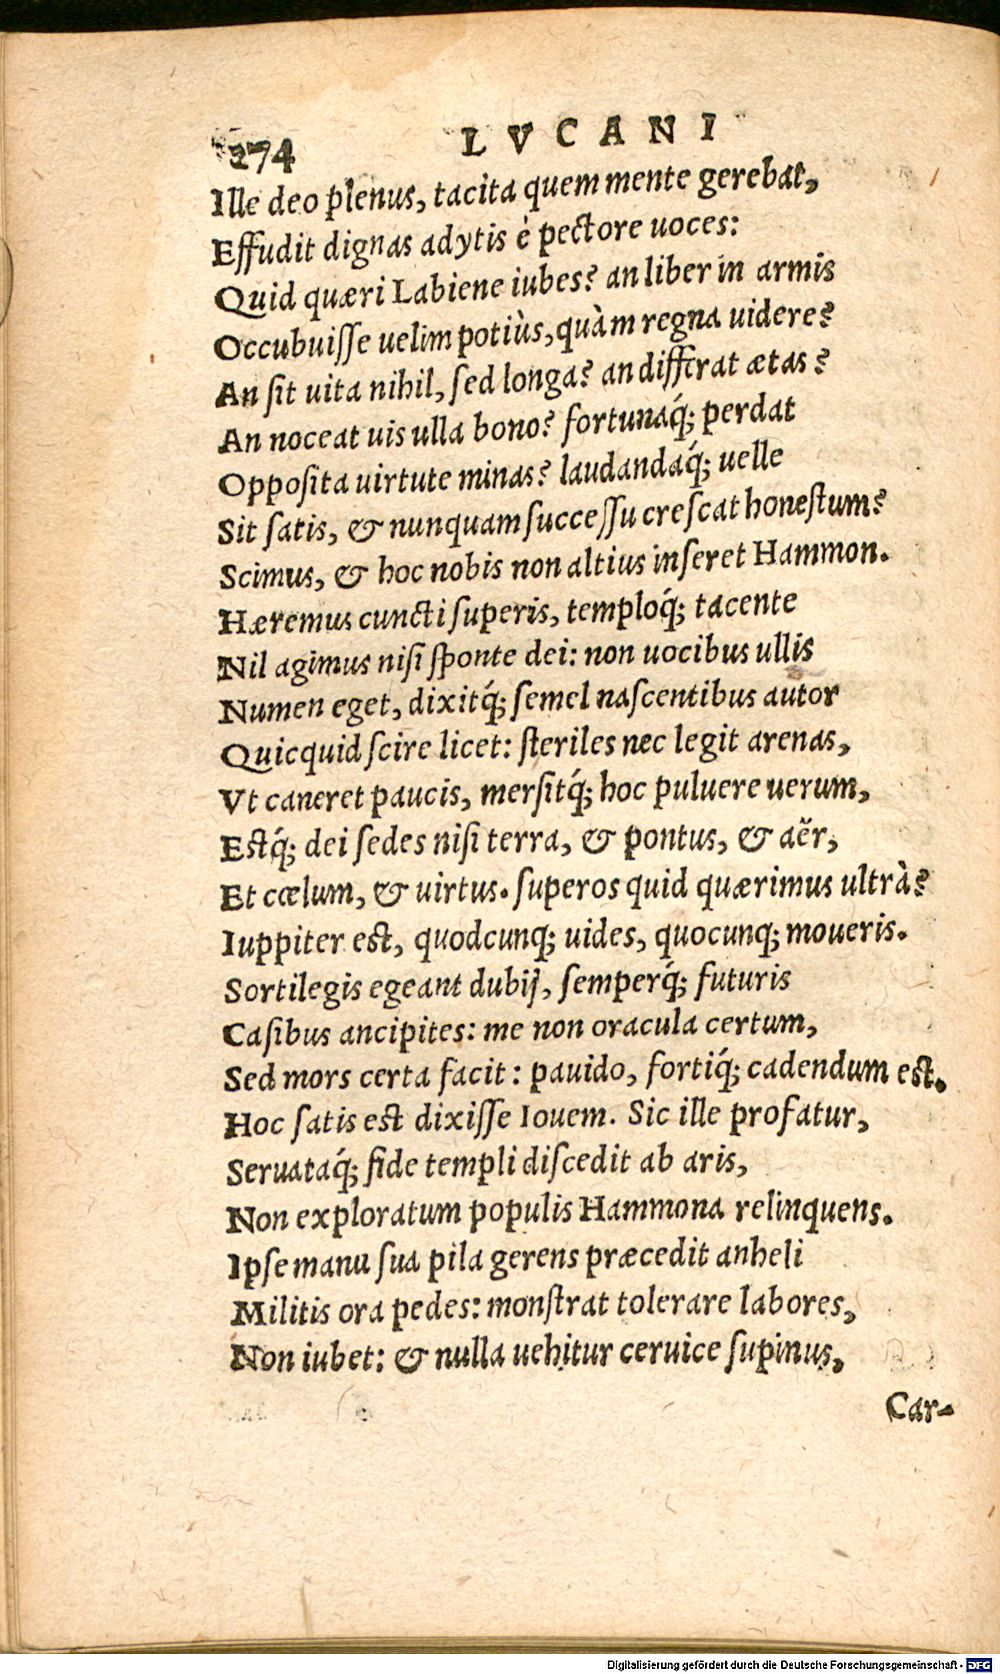 274 LVCANI
Ille deo plenus, tacita quem mente gerebat,
Effudit dignas adytis è pectore uoces:
Quid quæri Labiene iubes? an liber in armis
Occubuiſſe uelim potiùs, quàm regna uidere?
An ſit uita nihil, ſed longa? an differat ætas?
An noceat uis ulla bono? fortunaq́; perdat
Oppoſita uirtute minas? laudandaq́; uelle
Sit ſatis, & nunquam ſucceſſu creſcat honeſtum?
Scimus, & hoc nobis non altius inſeret Hammon.
Hæremus cuncti ſuperis, temploq́; tacente
Nil agimus niſi ſponte dei: non uocibus ullis
Numen eget, dixitq́; ſemel naſcentibus autor
Quicquid ſcire licet: ſteriles nec legit arenas,
Vt caneret paucis, merſitq́; hoc puluere uerum,
Eſtq́; dei ſedes niſi terra, & pontus, & aër,
Et cœlum, & uirtus. ſuperos quid quærimus ultrà?
Iuppiter eſt, quodcunq; uides, quocunq; moueris.
Sortilegis egeant dubij, ſemperq́; futuris
Caſibus ancipites: me non oracula certum,
Sed mors certa facit: pauido, fortiq́; cadendum eſt.
Hoc ſatis eſt dixiſſe Iouem. Sic ille profatur,
Seruataq́; fide templi diſcedit ab aris,
Non exploratum populis Hammona relinquens.
Ipſe manu ſua pila gerens præcedit anheli
Militis ora pedes: monſtrat tolerare labores,
Non iubet: & nulla uehitur ceruice ſupinus,
Car-
Digitalisierung gefördert durch die Deutsche Forschungsgemeinschaft - DFG